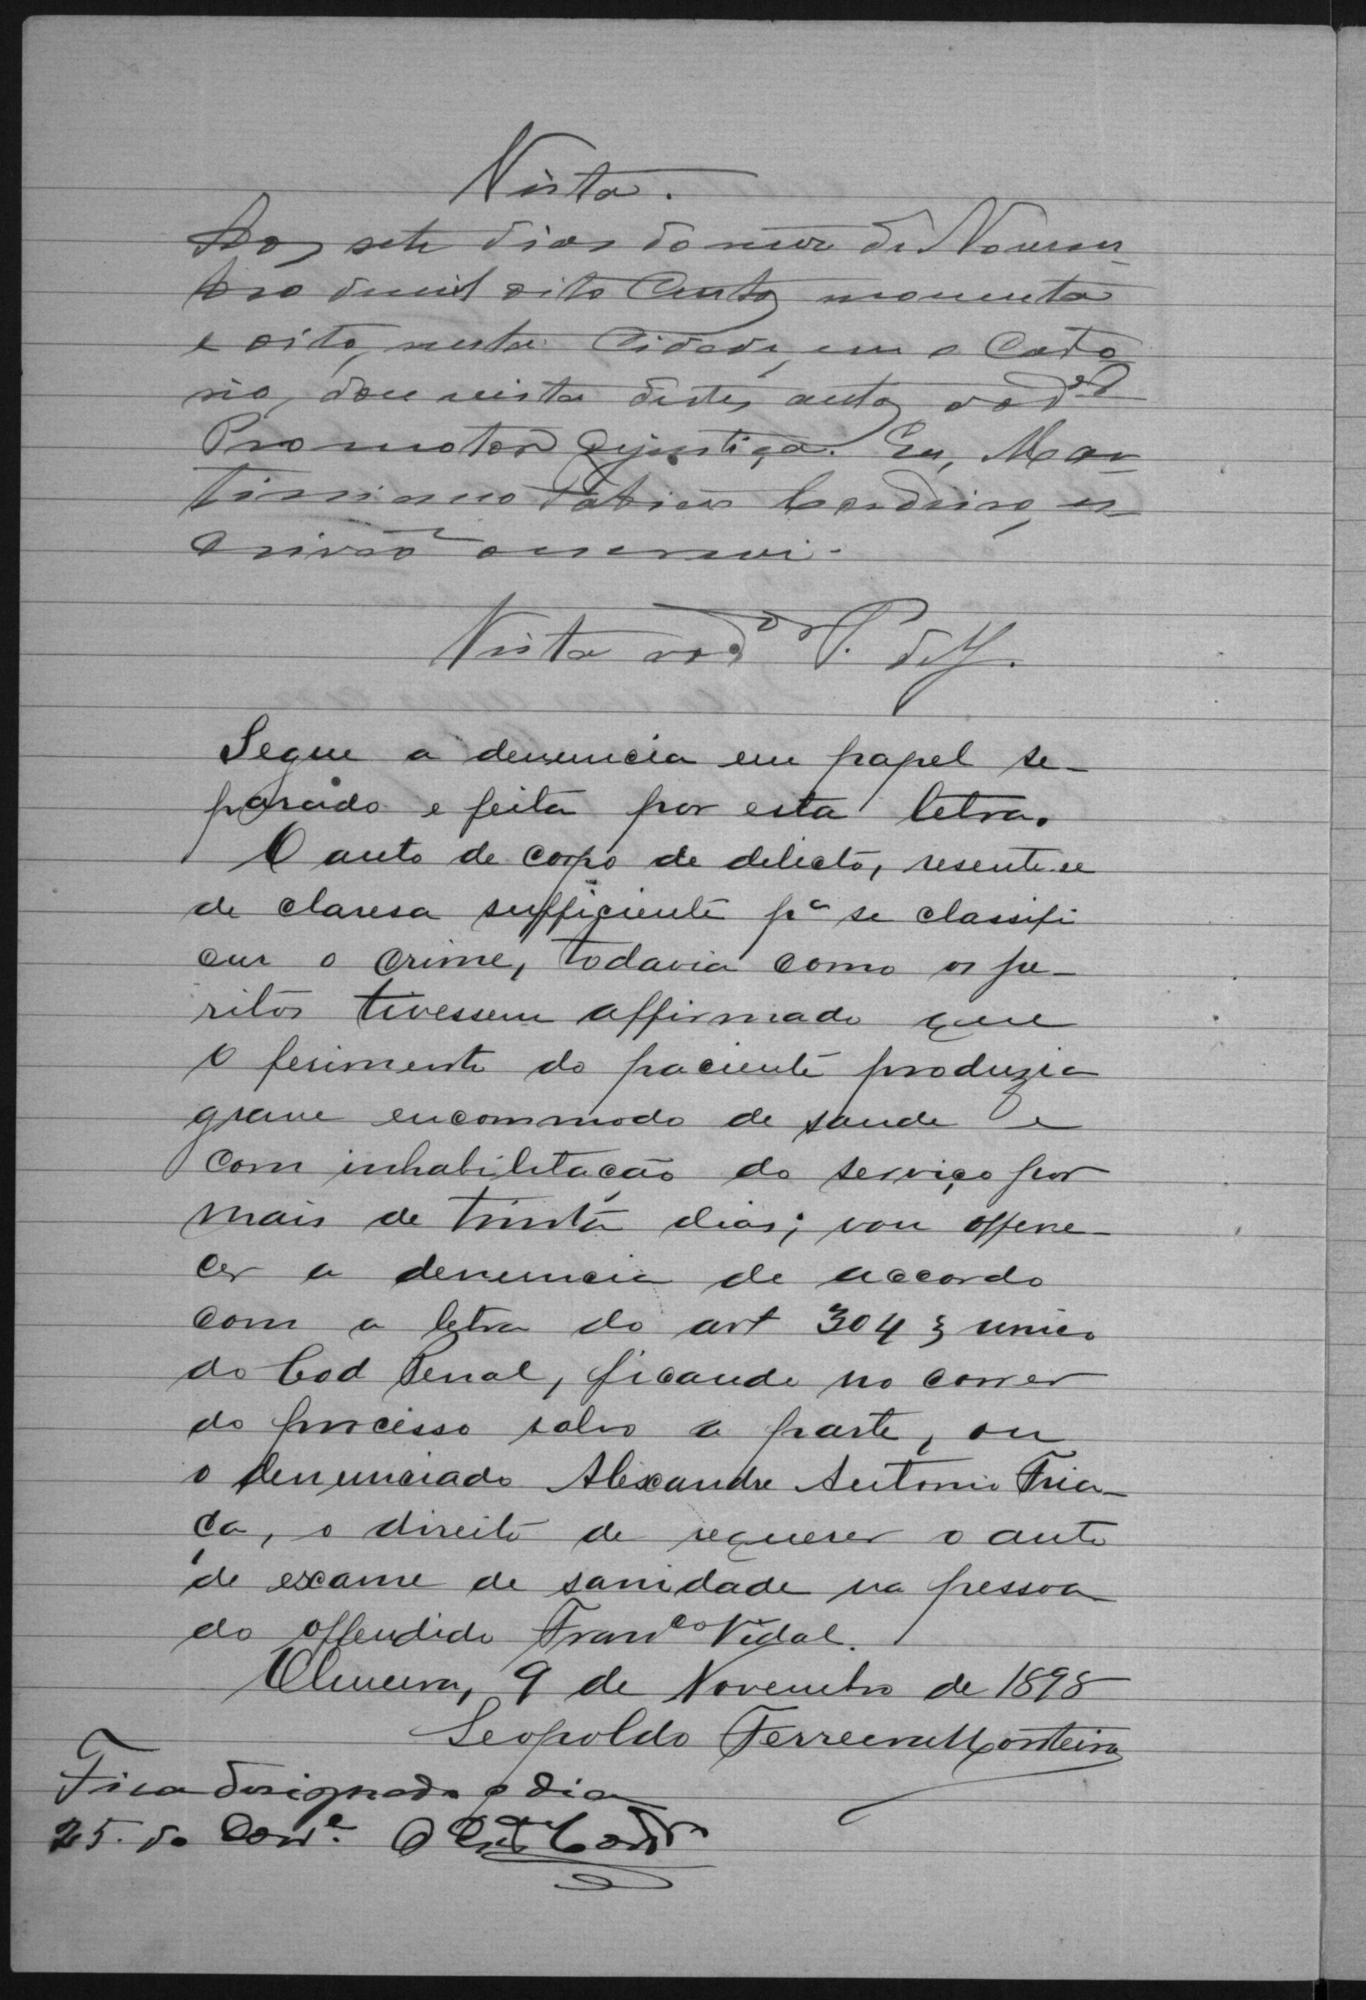 Vista.
Aos sete dias do mez de Novem-
bro de mil oito centos noventa
e oito, nesta Cidade, em o Carto
rio, dou vista destes autos ao d.or
Promotor de justiça. Eu, Mar-
timiano Cordeiro, es-
crivão o escrevi.
Vista ao d.or P. de J.
Segue a denuncia em papel se-
parado e feita por esta letra.
O auto de corpo de delicto, resente-se
de claresa sufficiente pa se classifi
car o crime, todavia como os pe-
ritos tivessem affirmado que
o ferimento do paciente produzia
grave encommodo de saude e
com inhabilitacão do serviço por
mais de trinta dias; vou offere-
cer a denuncia de accordo
com a letra do art 304 § unico
do Cod Penal, ficando no correr
do processo salvo a parte, ou
o denunciado Alexandre Antonio Fria-
ça, o direito de requerer o auto
de exame de sanidade na pessoa
do offendido Franco Vidal.
Oliveira, 9 de Novembro de 1898
Leopoldo Ferreira Monteiro
Fica designado o dia
25. do Corre. O Cordro